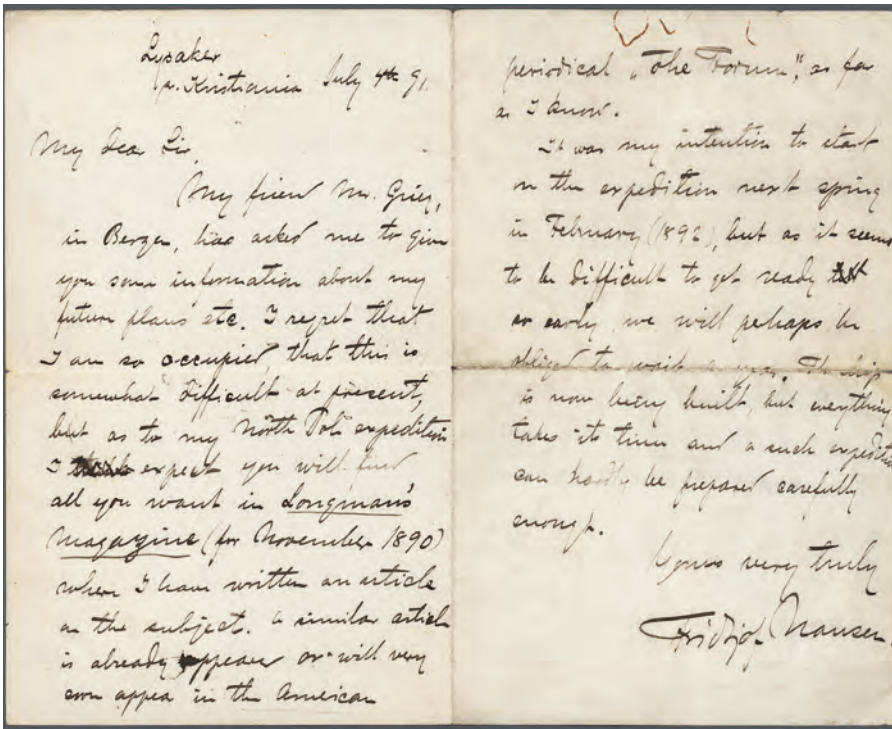 Lysaker
pr. Kristiania July 4th 91.
My dear Sir,
My friend Mr. Grieg,
in Bergen, has asked me to give
you some information about my
future plans etc. I regret that
I am so occupied, that this is
somewhat difficult at present,
but as to my North Pole expedition
I expect you will find
all you want in Longman's
Magazine (for November 1890)
where I have written an article
on the subject. A similar article
is already appeared or will very
soon appear in the American
periodical „The Forum", as far
as I know.
It was my intention to start
on the expedition next spring
in February (1892), but as it seems
to be difficult to get ready
so early, we will perhaps be
obliged to wait a year. The ship
is now being built, but everything
takes its time and a such expedition
can hardly be prepared carefully
enough.
Yours very truly
Fridtjof Nansen.